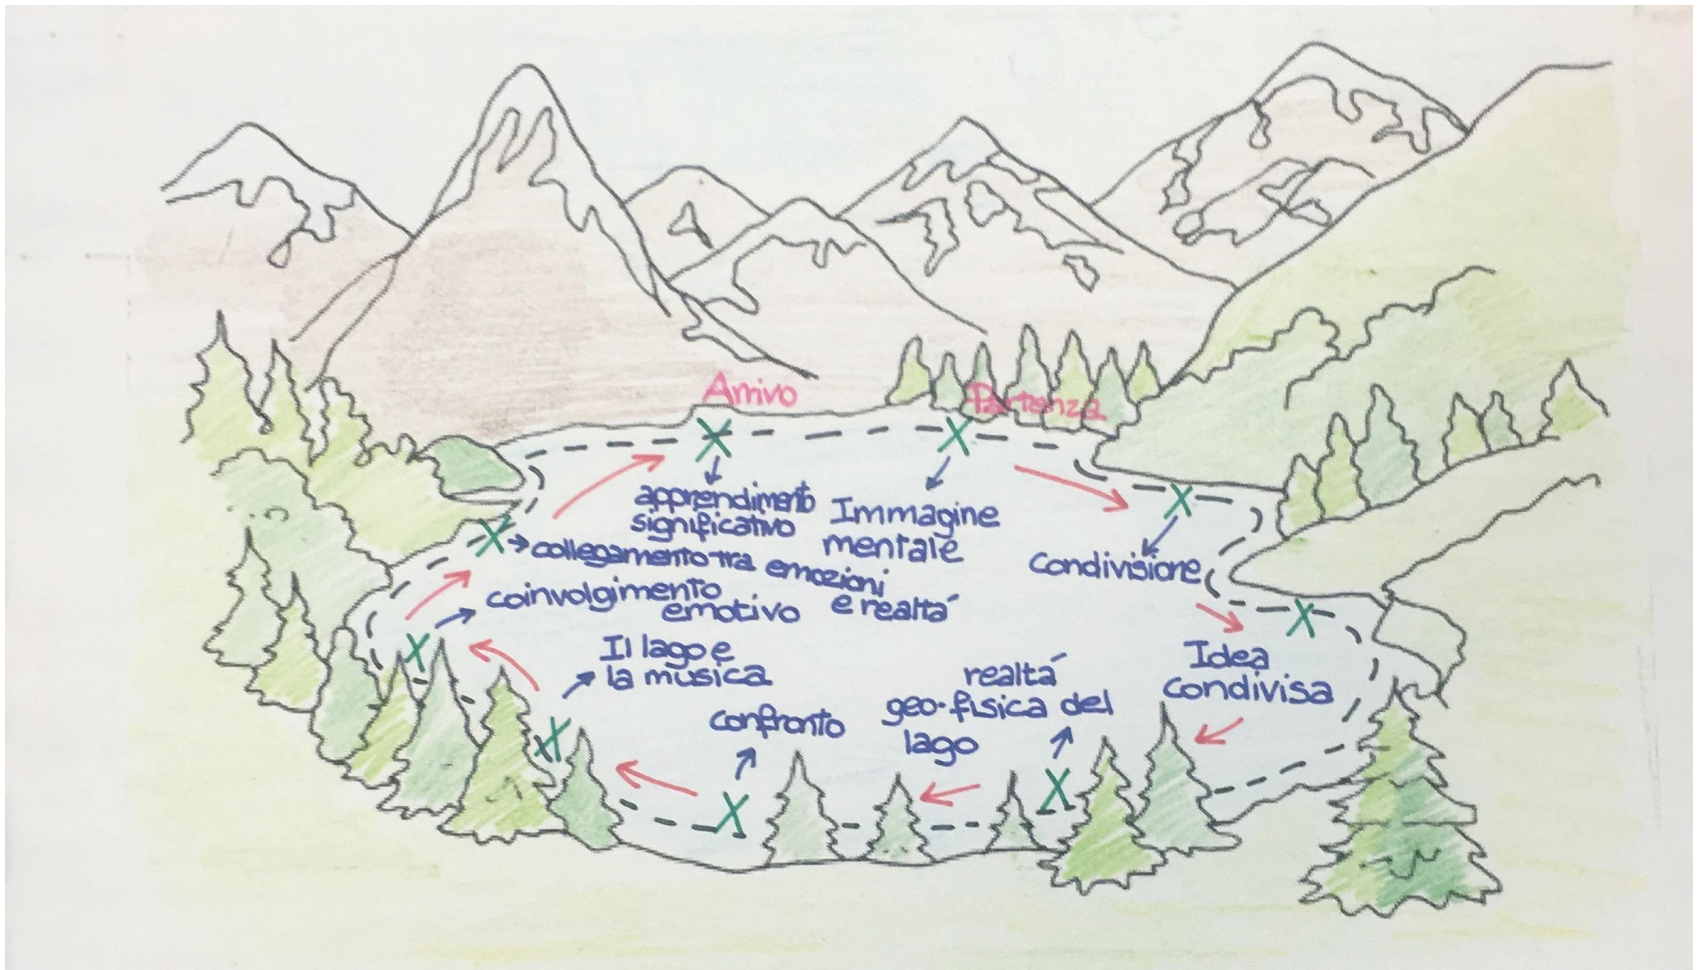 Arrivo
Partenza
apprendimento
significativo
Immagine
mentale
Condivisione
collegamento tra emozioni
e realtá
coinvolgimento
emotivo
Il lago e
la musica
confronto
realtá
geo-fisica del
lago
Idea
condivisa